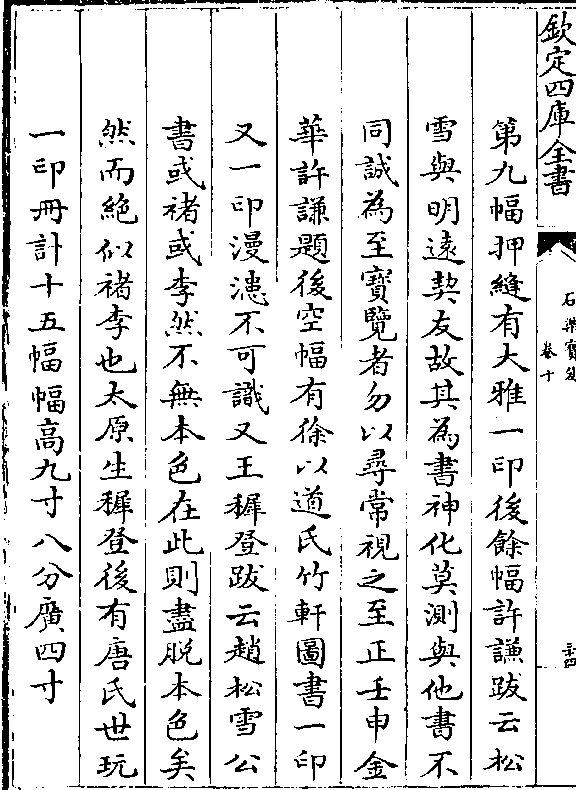 欽定四庫全書
石渠寶笈
卷十
三十四
第九幅押縫有大雅一印後餘幅許謙跋云松
雪與明遠契友故其為書神化莫測與他書不
同誠為至寶覽者勿以尋常視之至正壬申金
華許謙題後空幅有徐以道氏竹軒圖書一印
又一印漫漶不可識又王穉登跋云趙松雪公
書或褚或李然不無本色在此則盡脫本色矣
然而絕似褚李也太原生穉登後有唐氏世玩
一印冊計十五幅幅高九寸八分廣四寸